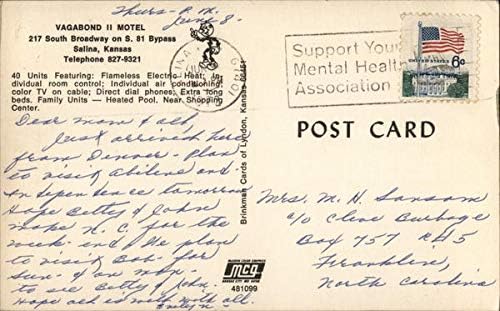 Thurs. P.M.
June 8-
VAGABOND II MOTEL
217 South Broadway on S. 81 Bypass
Salina, Kansas
Telephone 827-9321
40 Units Featuring: Flameless Electric Heat; In-
dividual room control; Individual air conditioning;
color TV on cable; Direct dial phones; Extra long
beds. Family Units — Heated Pool, Near Shopping
Center.
Dear Mom & all,
Just arrived here
from Denver - Plan
to visit Abilene and
Independence tomorrow
Hope Betty & John
make N.C. for the
week-end. We plan
to visit Bob for
Sun. & on Mon.
to see Betty & John.
Hope all is well with all.
Evelyn
Brinkman Cards of Lyndon, Kansas 66451
MCG
481099
Support Your
Mental Health
Association
UNITED STATES
6c
POST CARD
Mrs. M. H. Sansom
c/o Clive Burbage
Box 757 R#5
Franklin,
North Carolina